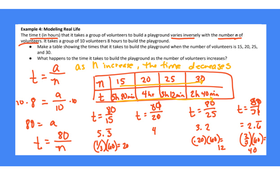 Example 4: Modeling Real Life
The time t (in hours) that it takes a group of volunteers to build a playground varies inversely with the number n of
volunteers. It takes a group of 10 volunteers 8 hours to build the playground.
• Make a table showing the times that it takes to build the playground when the number of volunteers is 15, 20, 25,
and 30.
• What happens to the time it takes to build the playground as the number of volunteers increases?
t = a/n
as n increase, the time decreases
n 15 20 25 30
t 5h 20min 4hr 3h 12min 2h 40min
10 · 8 = a/10 · 10
80 = a
t = 80/n
t = 80/15
5.3
(1/3)(60) = 20
t = 80/20
4
t = 80/25
3.2
(.20)(60)=
12
2.6
(2/3)(60)
40